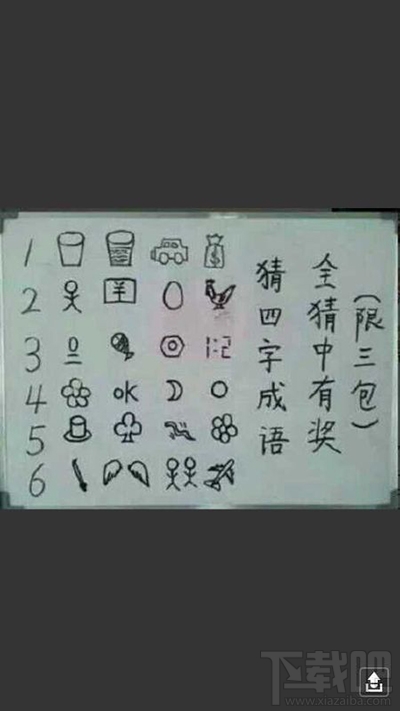 1 $
2 羊
3 1:2
4 OK
5
6
（限三包）
全猜中有奖
猜四字成语
下载吧
www.xiazaiba.com